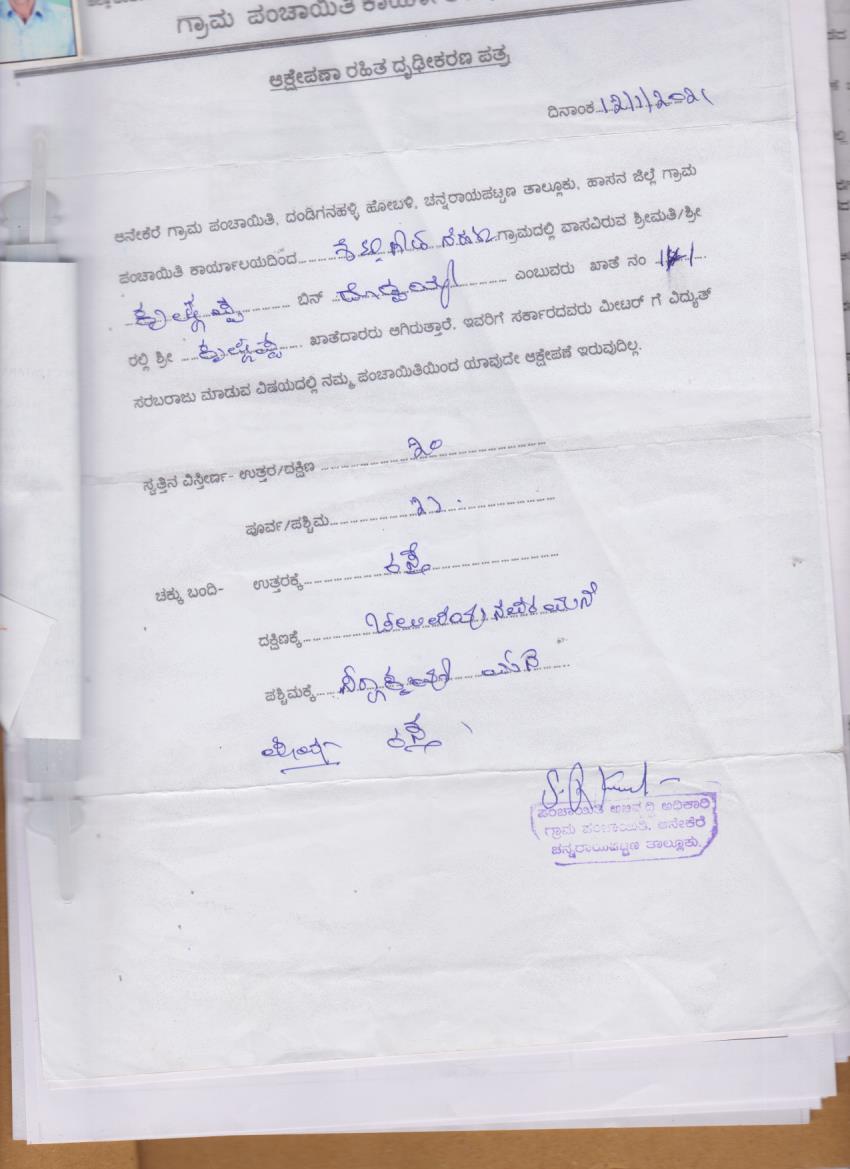 ಗ್ರಾಮ ಪಂಚಾಯಿತಿ
ಆಕ್ಷೇಪಣಾ ರಹಿತ ದೃಢೀಕರಣ ಪತ್ರ
ದಿನಾಂಕ 12/1/2021
ಆನೇಕೆರೆ ಗ್ರಾಮ ಪಂಚಾಯಿತಿ, ದಂಡಿಗನಹಳ್ಳಿ ಹೋಬಳಿ, ಚನ್ನರಾಯಪಟ್ಟಣ ತಾಲ್ಲೂಕು, ಹಾಸನ ಜಿಲ್ಲೆ ಗ್ರಾಮ
ಪಂಚಾಯಿತಿ ಕಾರ್ಯಾಲಯದಿಂದ ಗ್ರಾಮದಲ್ಲಿ ವಾಸವಿರುವ ಶ್ರೀಮತಿ/ಶ್ರೀ
ಕೃಷ್ಣಪ್ಪ ಬಿನ್ ದೊಡ್ಡಯ್ಯ ಎಂಬುವರು ಖಾತೆ ನಂ
ರಲ್ಲಿ ಶ್ರೀ ಕೃಷ್ಣಪ್ಪ ಖಾತೆದಾರರು ಆಗಿರುತ್ತಾರೆ. ಇವರಿಗೆ ಸರ್ಕಾರದವರು ಮೀಟರ್ ಗೆ ವಿದ್ಯುತ್
ಸರಬರಾಜು ಮಾಡುವ ವಿಷಯದಲ್ಲಿ ನಮ್ಮ ಪಂಚಾಯಿತಿಯಿಂದ ಯಾವುದೇ ಆಕ್ಷೇಪಣೆ ಇರುವುದಿಲ್ಲ.
ಸ್ವತ್ತಿನ ವಿಸ್ತೀರ್ಣ- ಉತ್ತರ/ದಕ್ಷಿಣ
ಪೂರ್ವ/ಪಶ್ಚಿಮ
ಚಕ್ಕು ಬಂದಿ- ಉತ್ತರಕ್ಕೆ ರಸ್ತೆ
ದಕ್ಷಿಣಕ್ಕೆ
ಪಶ್ಚಿಮಕ್ಕೆ ಮನೆ
ರಸ್ತೆ
ಪಂಚಾಯಿತಿ ಅಭಿವೃದ್ಧಿ ಅಧಿಕಾರಿ
ಗ್ರಾಮ ಪಂಚಾಯಿತಿ, ಆನೇಕೆರೆ
ಚನ್ನರಾಯಪಟ್ಟಣ ತಾಲ್ಲೂಕು.